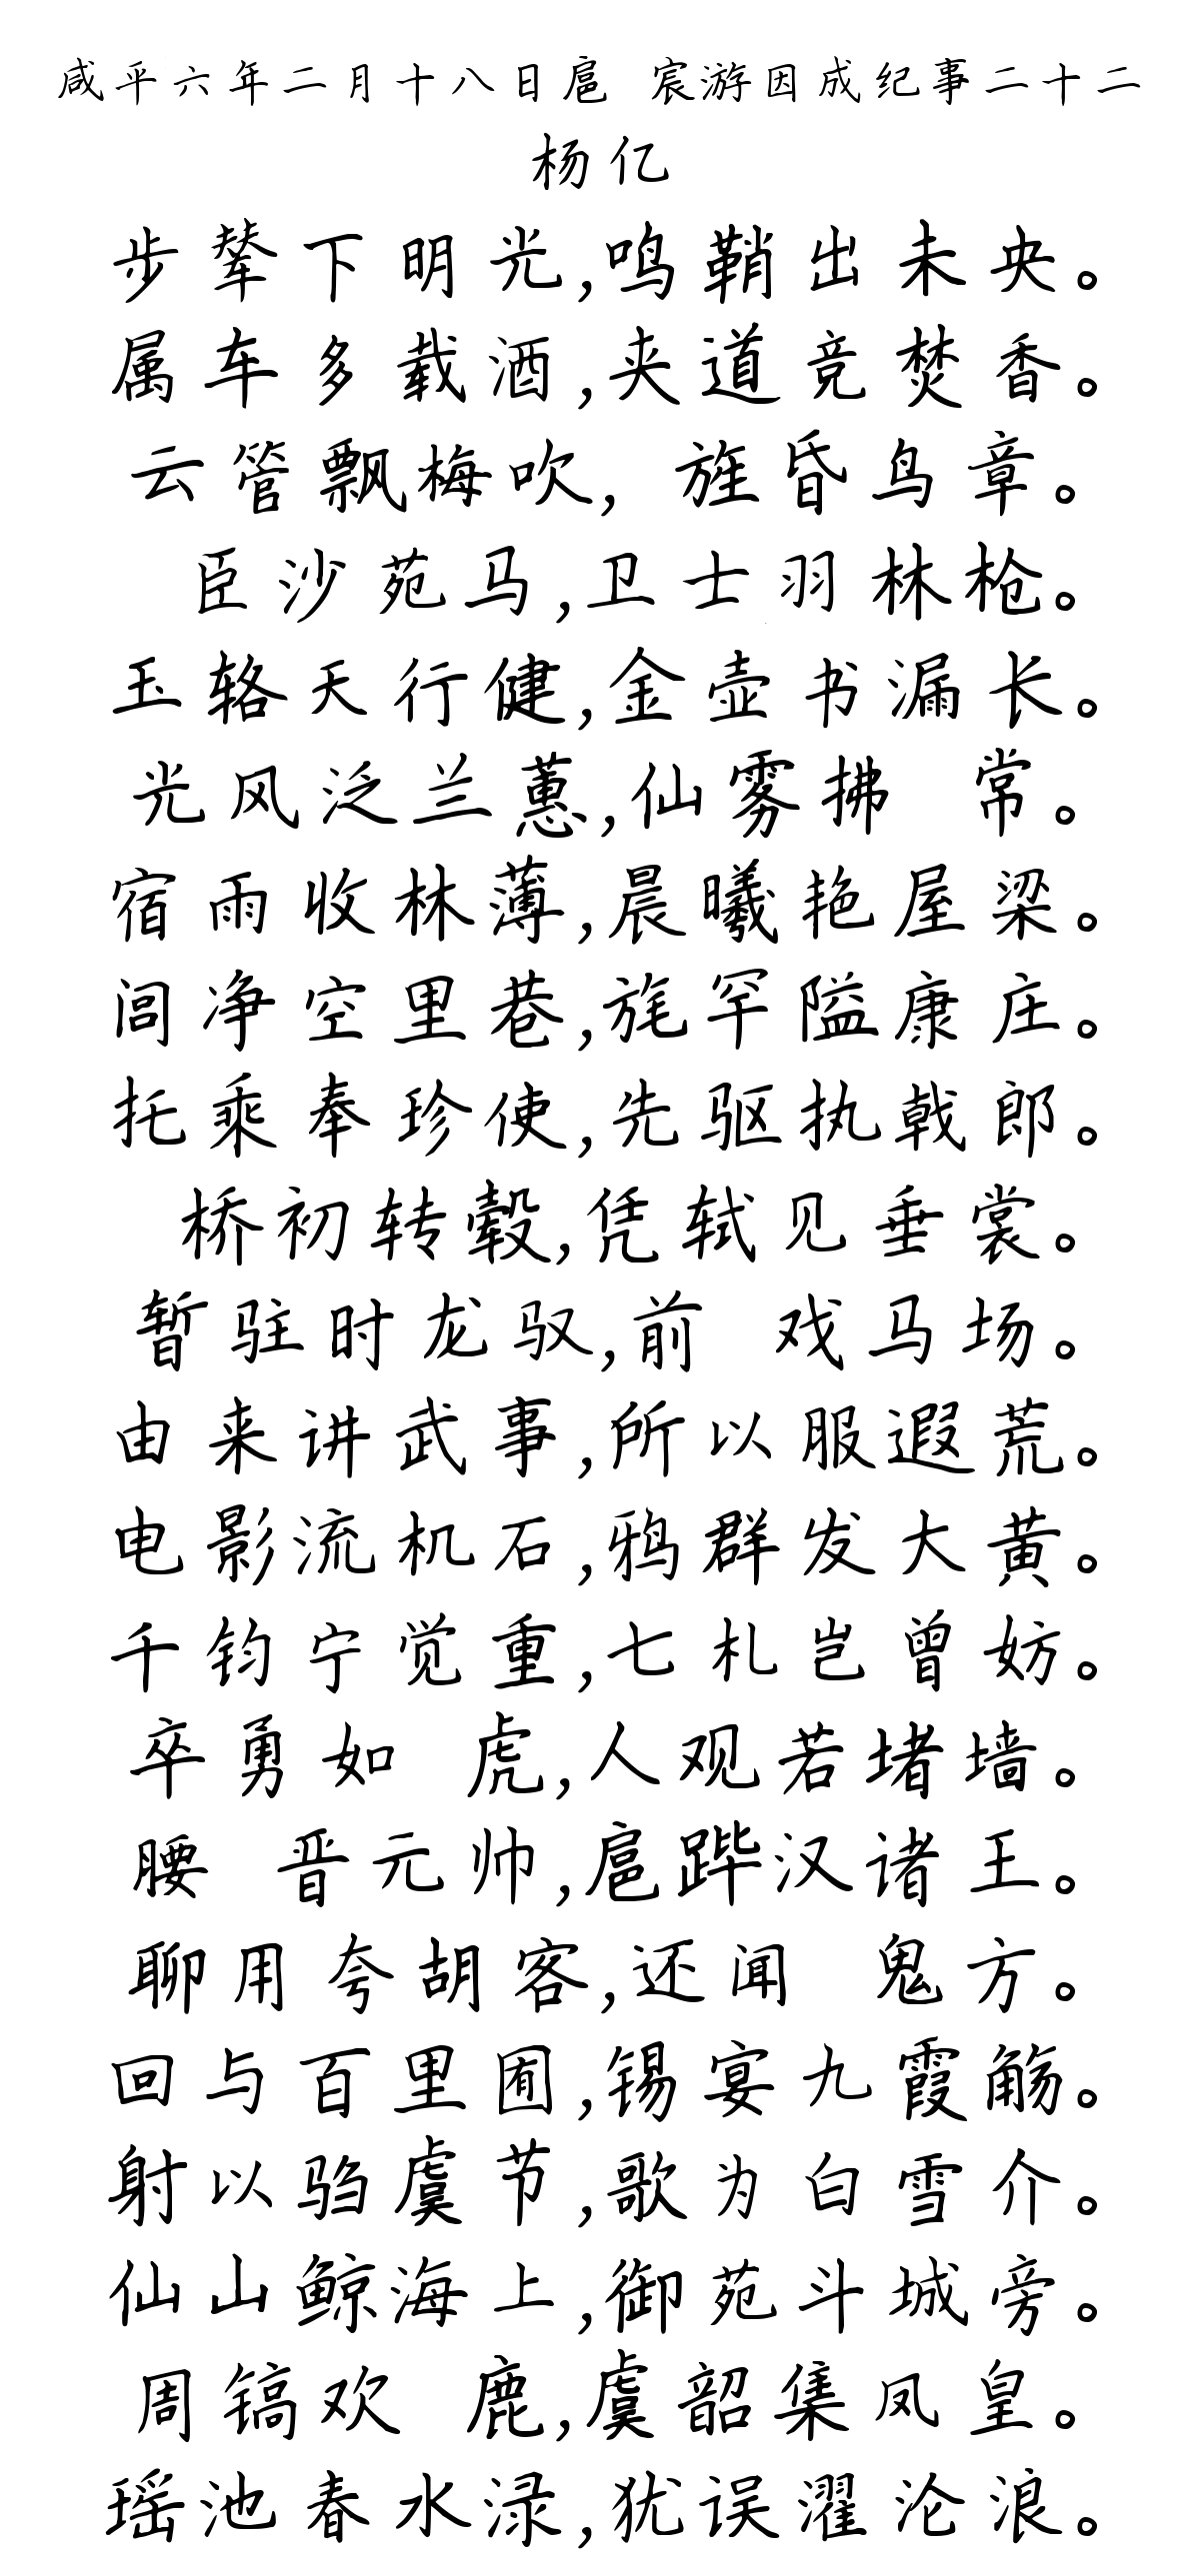 咸平六年二月十八日扈 宸游因成纪事二十二
杨亿
步辇下明光,鸣鞘出未央。
属车多载酒,夹道竞焚香。
云管飘梅吹, 旌昏鸟章。
臣沙苑马,卫士羽林枪。
玉辂天行健,金壶书漏长。
光风泛兰蕙,仙雾拂 常。
宿雨收林薄,晨曦艳屋梁。
闾净空里巷,旄罕隘康庄。
托乘奉珍使,先驱执戟郎。
桥初转毂,凭轼见垂裳。
暂驻时龙驭,前 戏马场。
由来讲武事,所以服遐荒。
电影流机石,鸦群发大黄。
千钧宁觉重,七札岂曾妨。
卒勇如 虎,人观若堵墙。
腰 晋元帅,扈跸汉诸王。
聊用夸胡客,还闻 鬼方。
回与百里囿,锡宴九霞觞。
射以驺虞节,歌为白雪介。
仙山鲸海上,御苑斗城旁。
周镐欢 鹿,虞韶集凤皇。
瑶池春水渌,犹误濯沦浪。